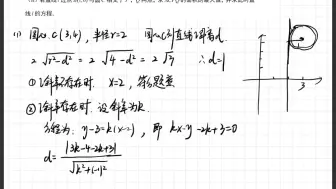 线l的方程.
(1) 圆心C(3,4), 半径r=2 圆心C到直线l距离d.
2√r²-d² = 2√4-d² = 2√3 ∴d=1
①斜率不存在时. x=2, 符合题意
②斜率存在时. 设斜率为k.
方程为: y-3=k(x-2), 即 kx-y-2k+3=0
d= |3k-4-2k+3| / √k²+(-1)²
3